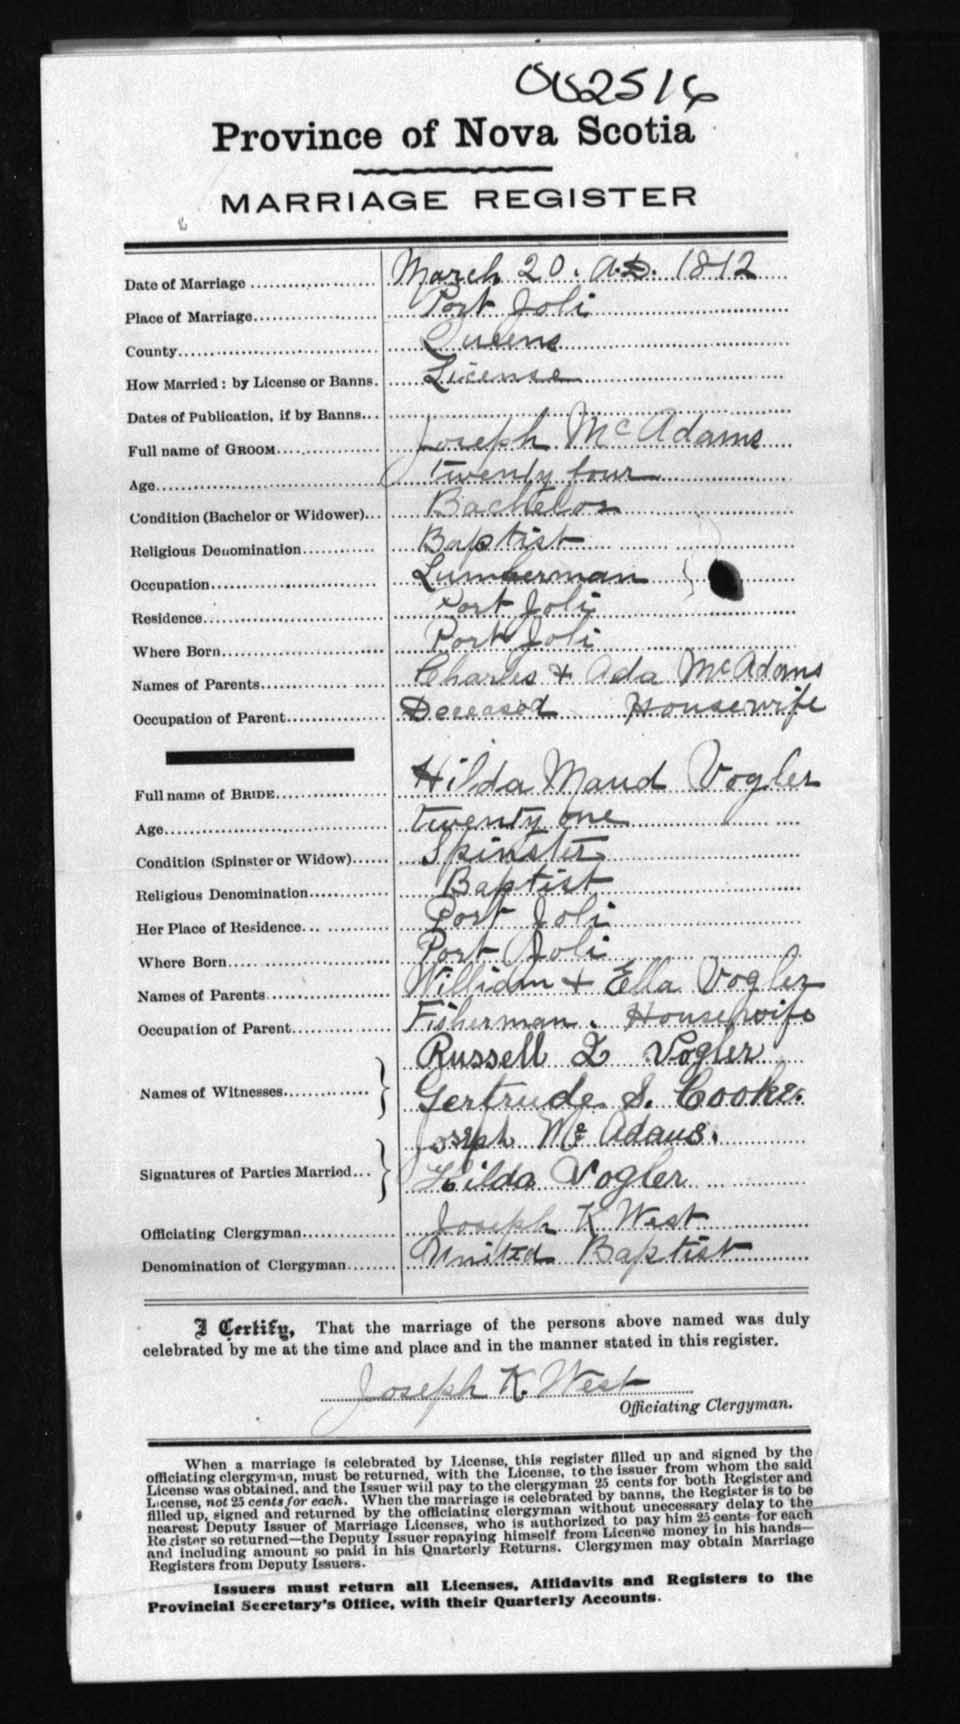 002516
Province of Nova Scotia
MARRIAGE REGISTER
Date of Marriage ... March 20. A.D. 1812
Place of Marriage... Port Joli
County... Queens
How Married: by License or Banns. License
Dates of Publication, if by Banns...
Full name of GROOM... Joseph McAdams
Age... twenty four
Condition (Bachelor or Widower)... Bachelor
Religious Denomination... Baptist
Occupation... Lumberman
Residence... Port Joli
Where Born... Port Joli
Names of Parents... Charles + Ada McAdams
Occupation of Parent... Deceased Housewife
Full name of BRIDE... Hilda Maud Vogler
Age... twenty one
Condition (Spinster or Widow)... Spinster
Religious Denomination... Baptist
Her Place of Residence... Port Joli
Where Born... Port Joli
Names of Parents... William + Ella Vogler
Occupation of Parent... Fisherman. Housewife
Russell Z Vogler
Names of Witnesses...
Gertrude S. Cooke.
Joseph Mc Adams.
Signatures of Parties Married...
Hilda Vogler
Officiating Clergyman... Joseph K West
Denomination of Clergyman... United Baptist
I Certify, That the marriage of the persons above named was duly
celebrated by me at the time and place and in the manner stated in this register.
Joseph K. West
Officiating Clergyman.
When a marriage is celebrated by License, this register filled up and signed by the
officiating clergyman, must be returned, with the License, to the issuer from whom the said
License was obtained, and the Issuer will pay to the clergyman 25 cents for both Register and
License, not 25 cents for each. When the marriage is celebrated by banns, the Register is to be
filled up, signed and returned by the officiating clergyman without unecessary delay to the
nearest Deputy Issuer of Marriage Licenses, who is authorized to pay him 25 cents for each
Register so returned—the Deputy Issuer repaying himself from License money in his hands—
and including amount so paid in his Quarterly Returns. Clergymen may obtain Marriage
Registers from Deputy Issuers.
Issuers must return all Licenses, Affidavits and Registers to the
Provincial Secretary's Office, with their Quarterly Accounts.